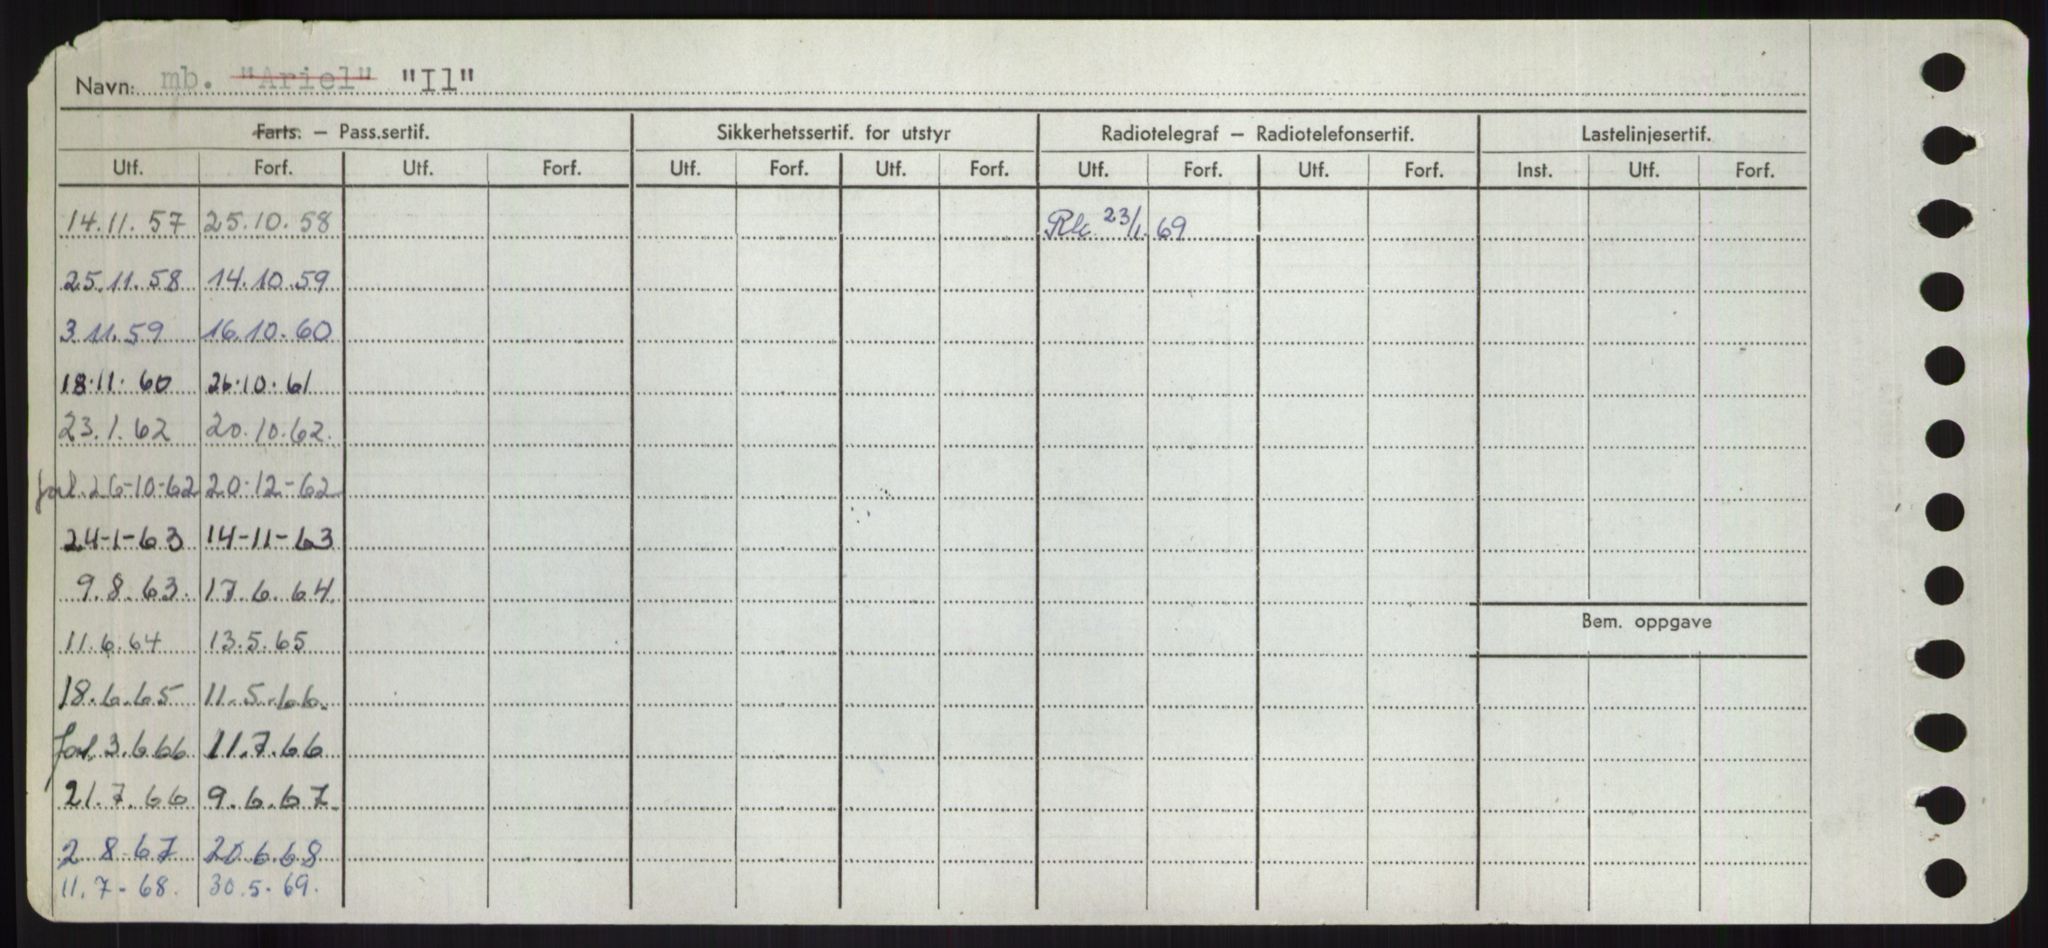 Navn: mb. "Ariel" "Il"
Farts. – Pass.sertif. Sikkerhetssertif. for utstyr Radiotelegraf – Radiotelefonsertif. Lastelinjesertif.
Utf. Forf. Utf. Forf. Utf. Forf. Utf. Forf. Utf. Forf. Utf. Forf. Inst. Utf. Forf.
14.11.57 25.10.58 Rk. 23/1.69
25.11.58 14.10.59
3.11.59 16.10.60
18.11.60 26.10.61
23.1.62 20.10.62.
forl. 26-10-62 20-12-62
24-1-63 14-11-63
9.8.63. 17.6.64.
Bem. oppgave
11.6.64 13.5.65
18.6.65 11.5.66.
forl. 3.6.66 11.7.66
21.7.66 9.6.67.
2.8.67 20.6.68
11.7-68. 30.5-69.